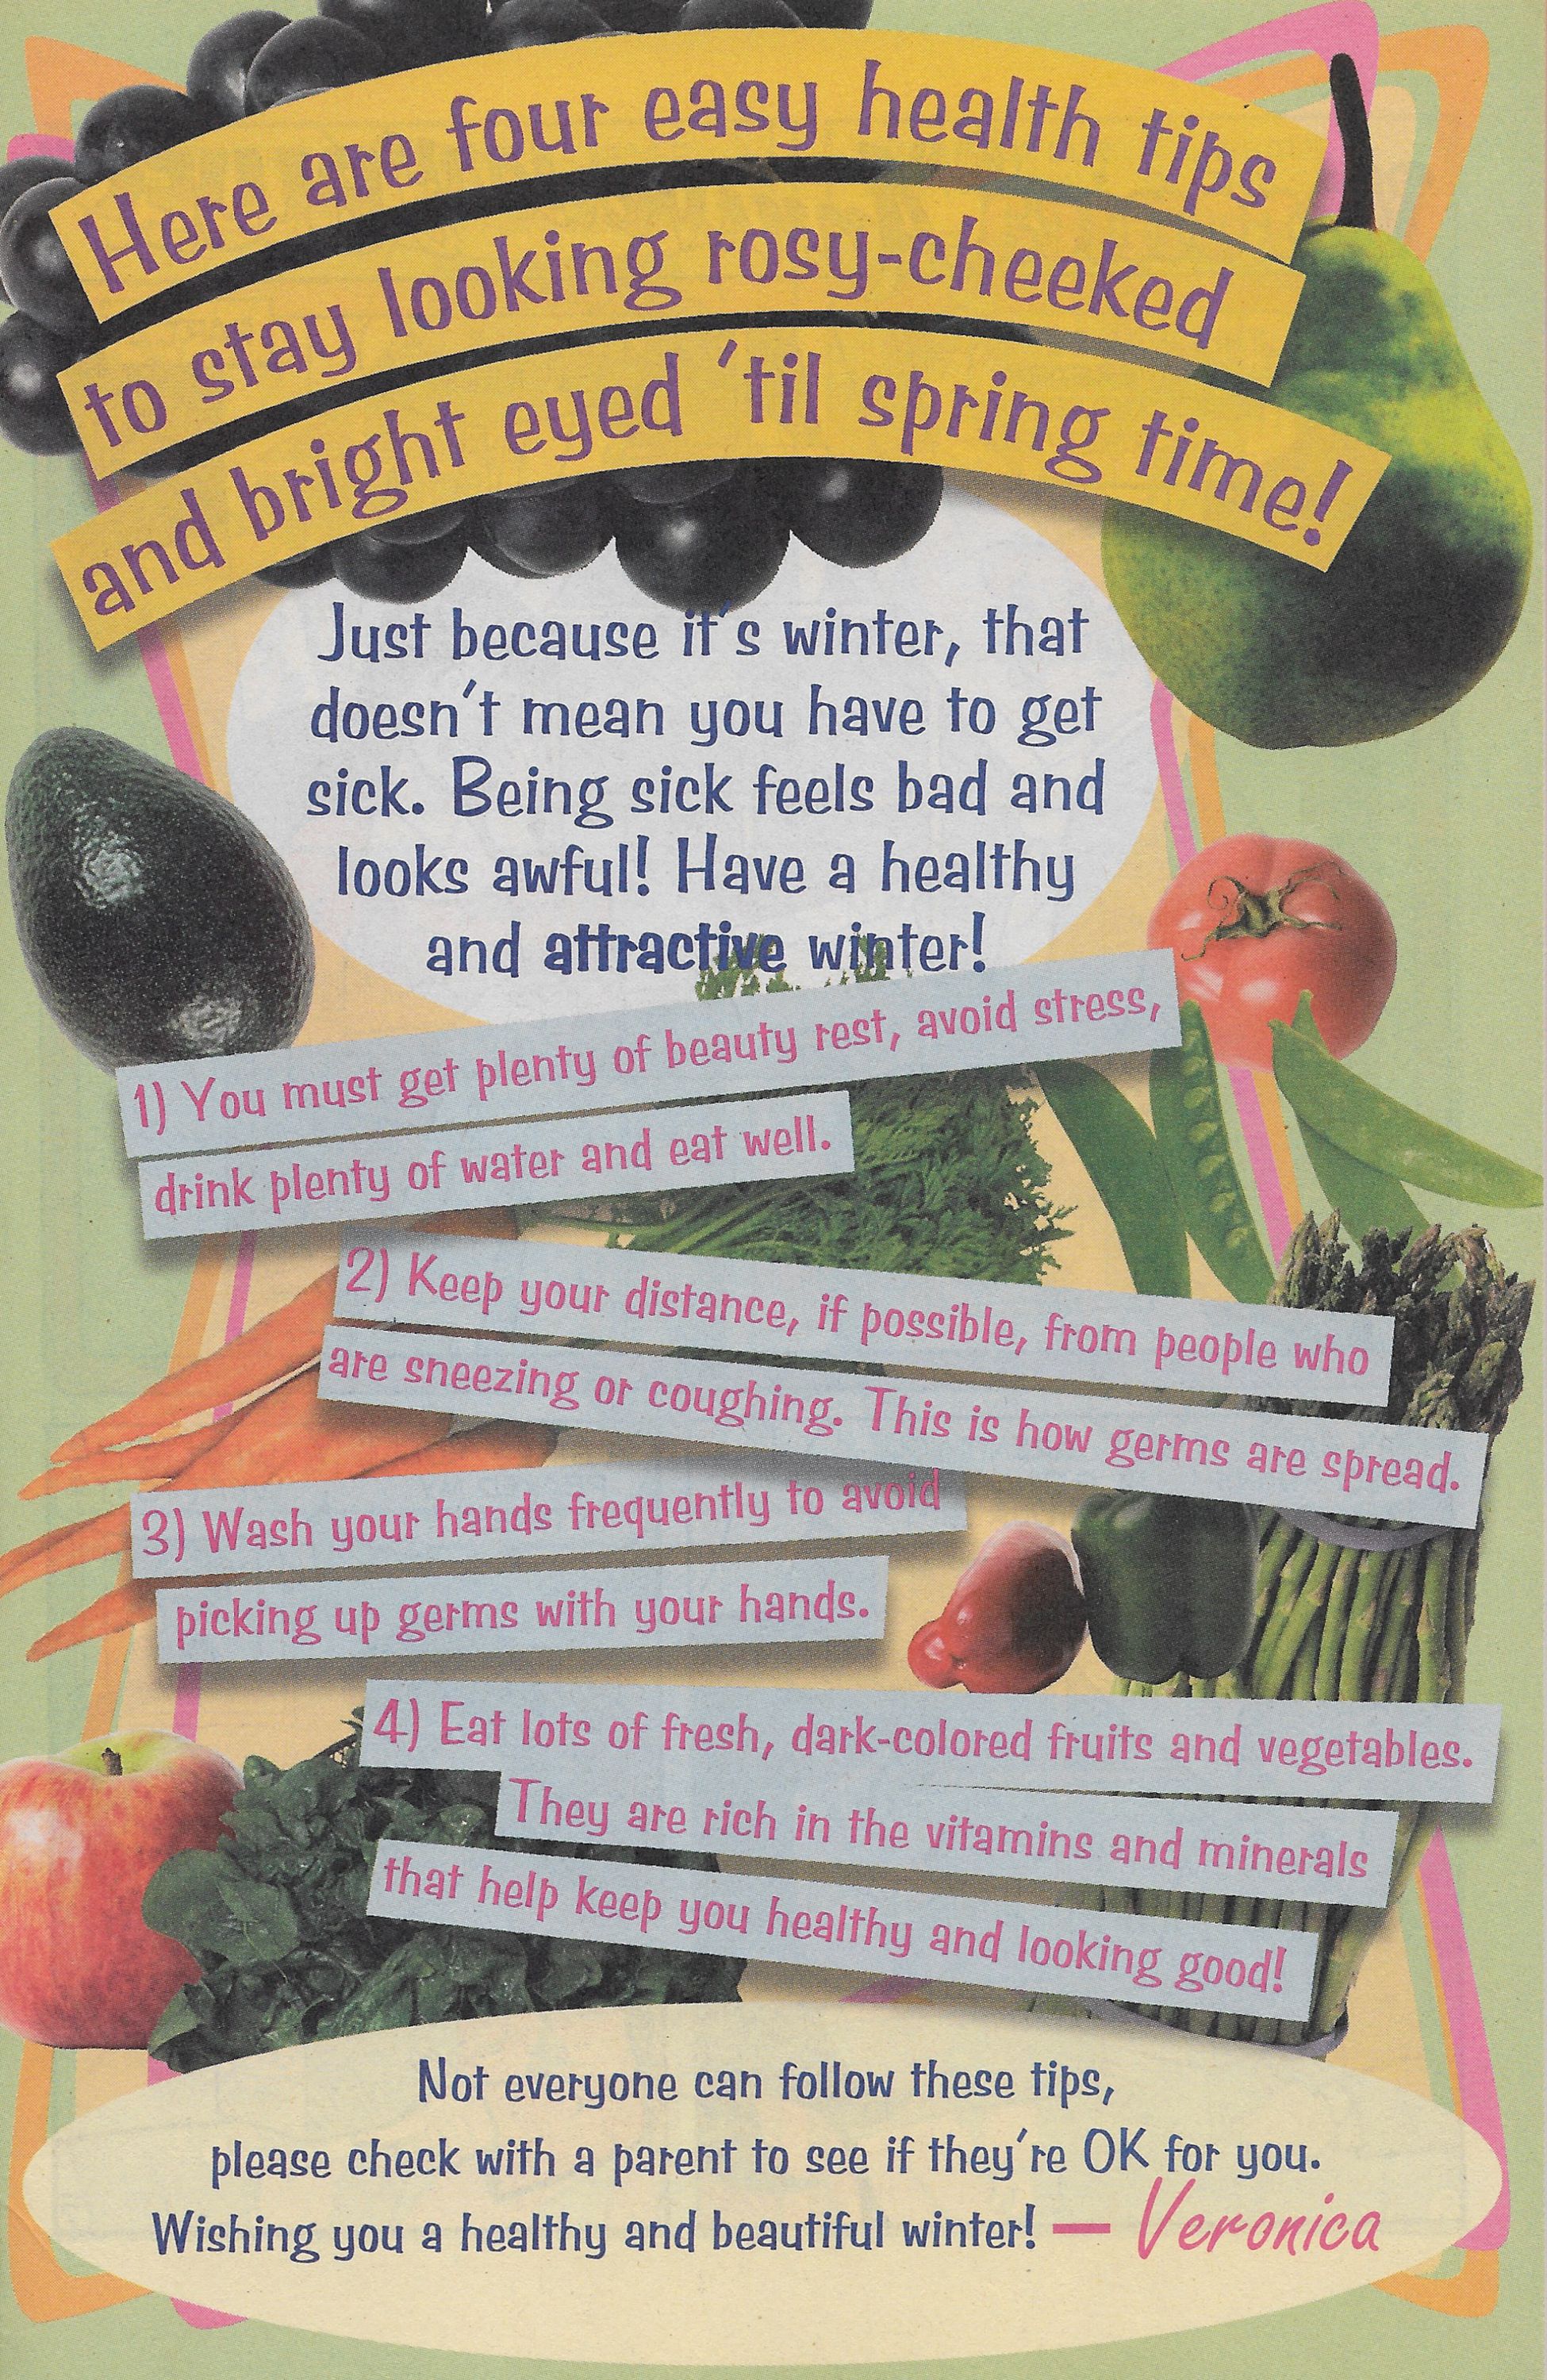 Here are four easy health tips
to stay looking rosy-cheeked
and bright eyed 'til spring time!
Just because it's winter, that
doesn't mean you have to get
sick. Being sick feels bad and
looks awful! Have a healthy
and attractive winter!
1) You must get plenty of beauty rest, avoid stress,
drink plenty of water and eat well.
2) Keep your distance, if possible, from people who
are sneezing or coughing. This is how germs are spread.
3) Wash your hands frequently to avoid
picking up germs with your hands.
4) Eat lots of fresh, dark-colored fruits and vegetables.
They are rich in the vitamins and minerals
that help keep you healthy and looking good!
Not everyone can follow these tips,
please check with a parent to see if they're OK for you.
Wishing you a healthy and beautiful winter! — Veronica